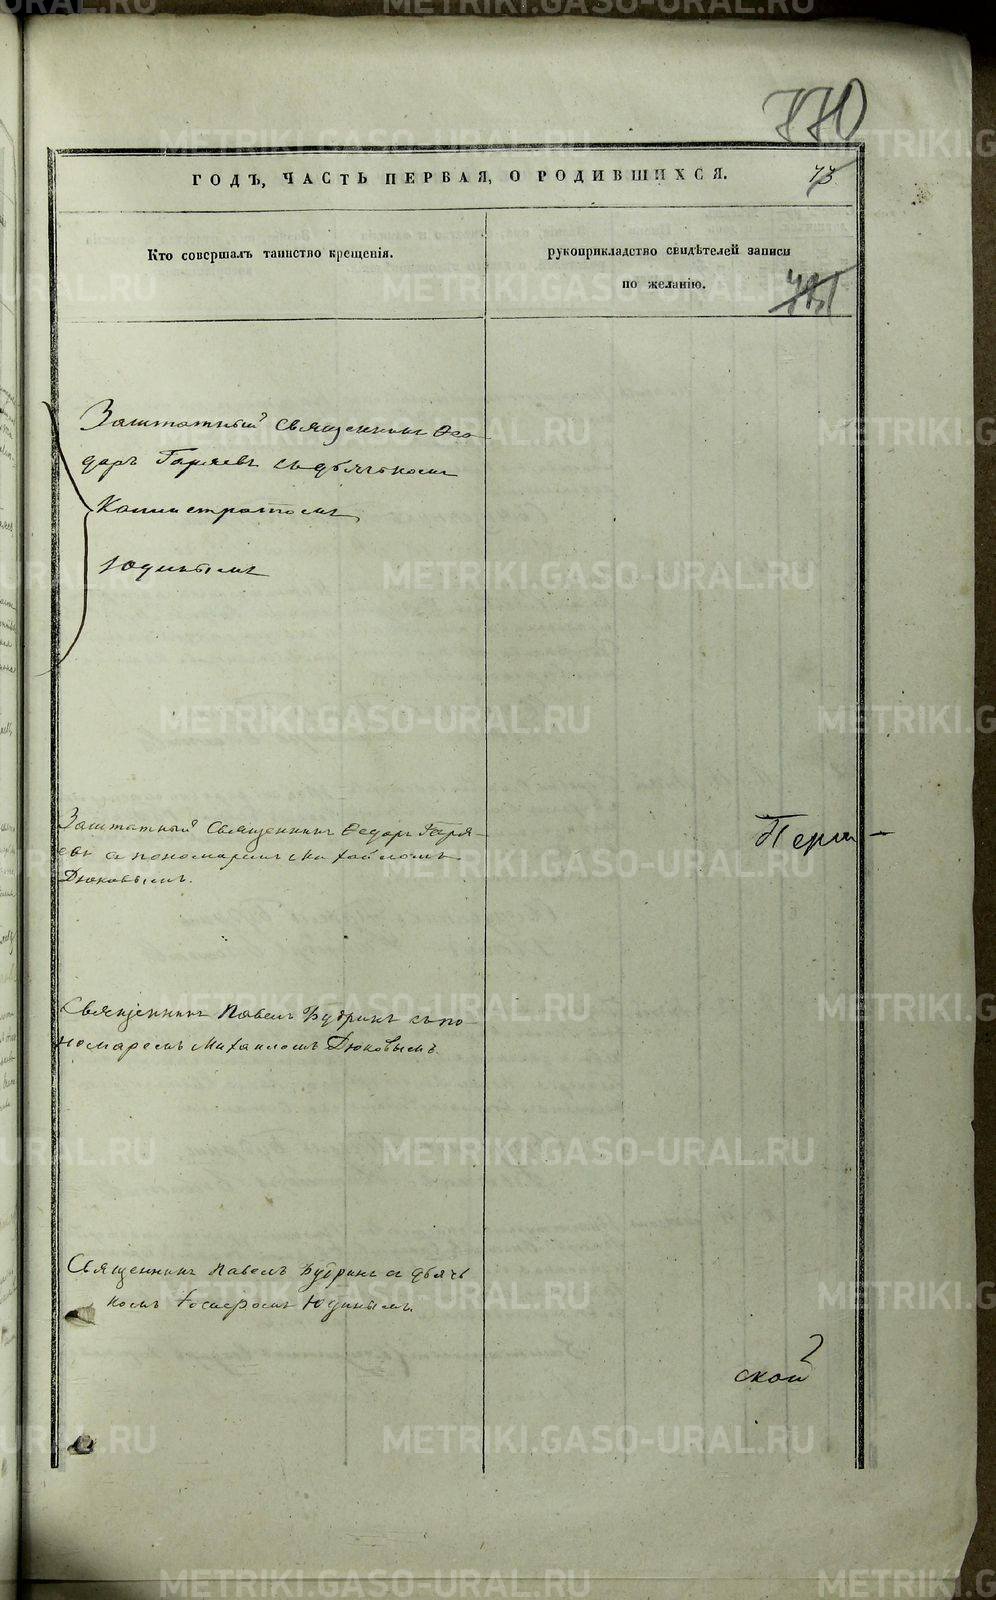 770
ГОДЪ, ЧАСТЬ ПЕРВАЯ, О РОДИВШИХСЯ.
Кто совершалъ таинство крещенія.
рукоприкладство свидѣтелей записи
по желанію.
Заштатный Священникъ Ѳео
доръ Гаряевъ съ дьячькомъ
Каллистратомъ
Юдинымъ
Заштатный Священникъ Ѳедоръ Гаря-
евъ съ пономаремъ Михайломъ
Дюковымъ.
Перм-
Священникъ Павелъ Будринъ съ по
номаремъ Михаиломъ Дюковымъ.
Священникъ Павелъ Будринъ съ дьячь
комъ Юдинымъ.
ской
METRIKI.GASO-URAL.RU